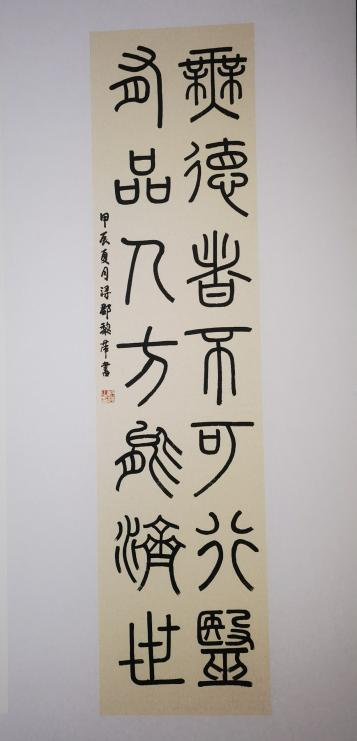 無德者不可行醫
有品人方能濟世
甲辰夏月潯郡黎萍書